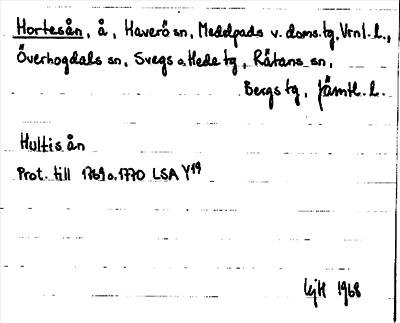 Hortesån, å, Haverö sn, Medelpads v. doms.tg, Vrnl. l.,
Överhogdals sn, Svegs o. Hede tg, Råtans sn,
Bergs tg, Jämtl. l.
Hultis ån
Prot. till 1769 o. 1770 LSA Y19
1968